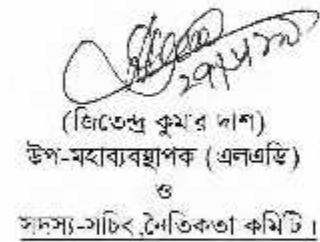 (জিতেন্দ্র কুমার দাশ)
উপ-মহাব্যবস্থাপক (এলএডি)
ও
সদস্য-সচিব, নৈতিকতা কমিটি।